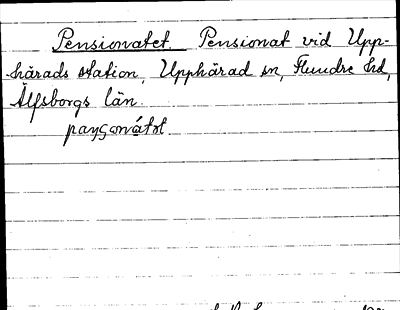 Pensionatet. Pensionat vid Upp-
härads station, Upphärad sn, Flundre hd,
Älfsborgs län.